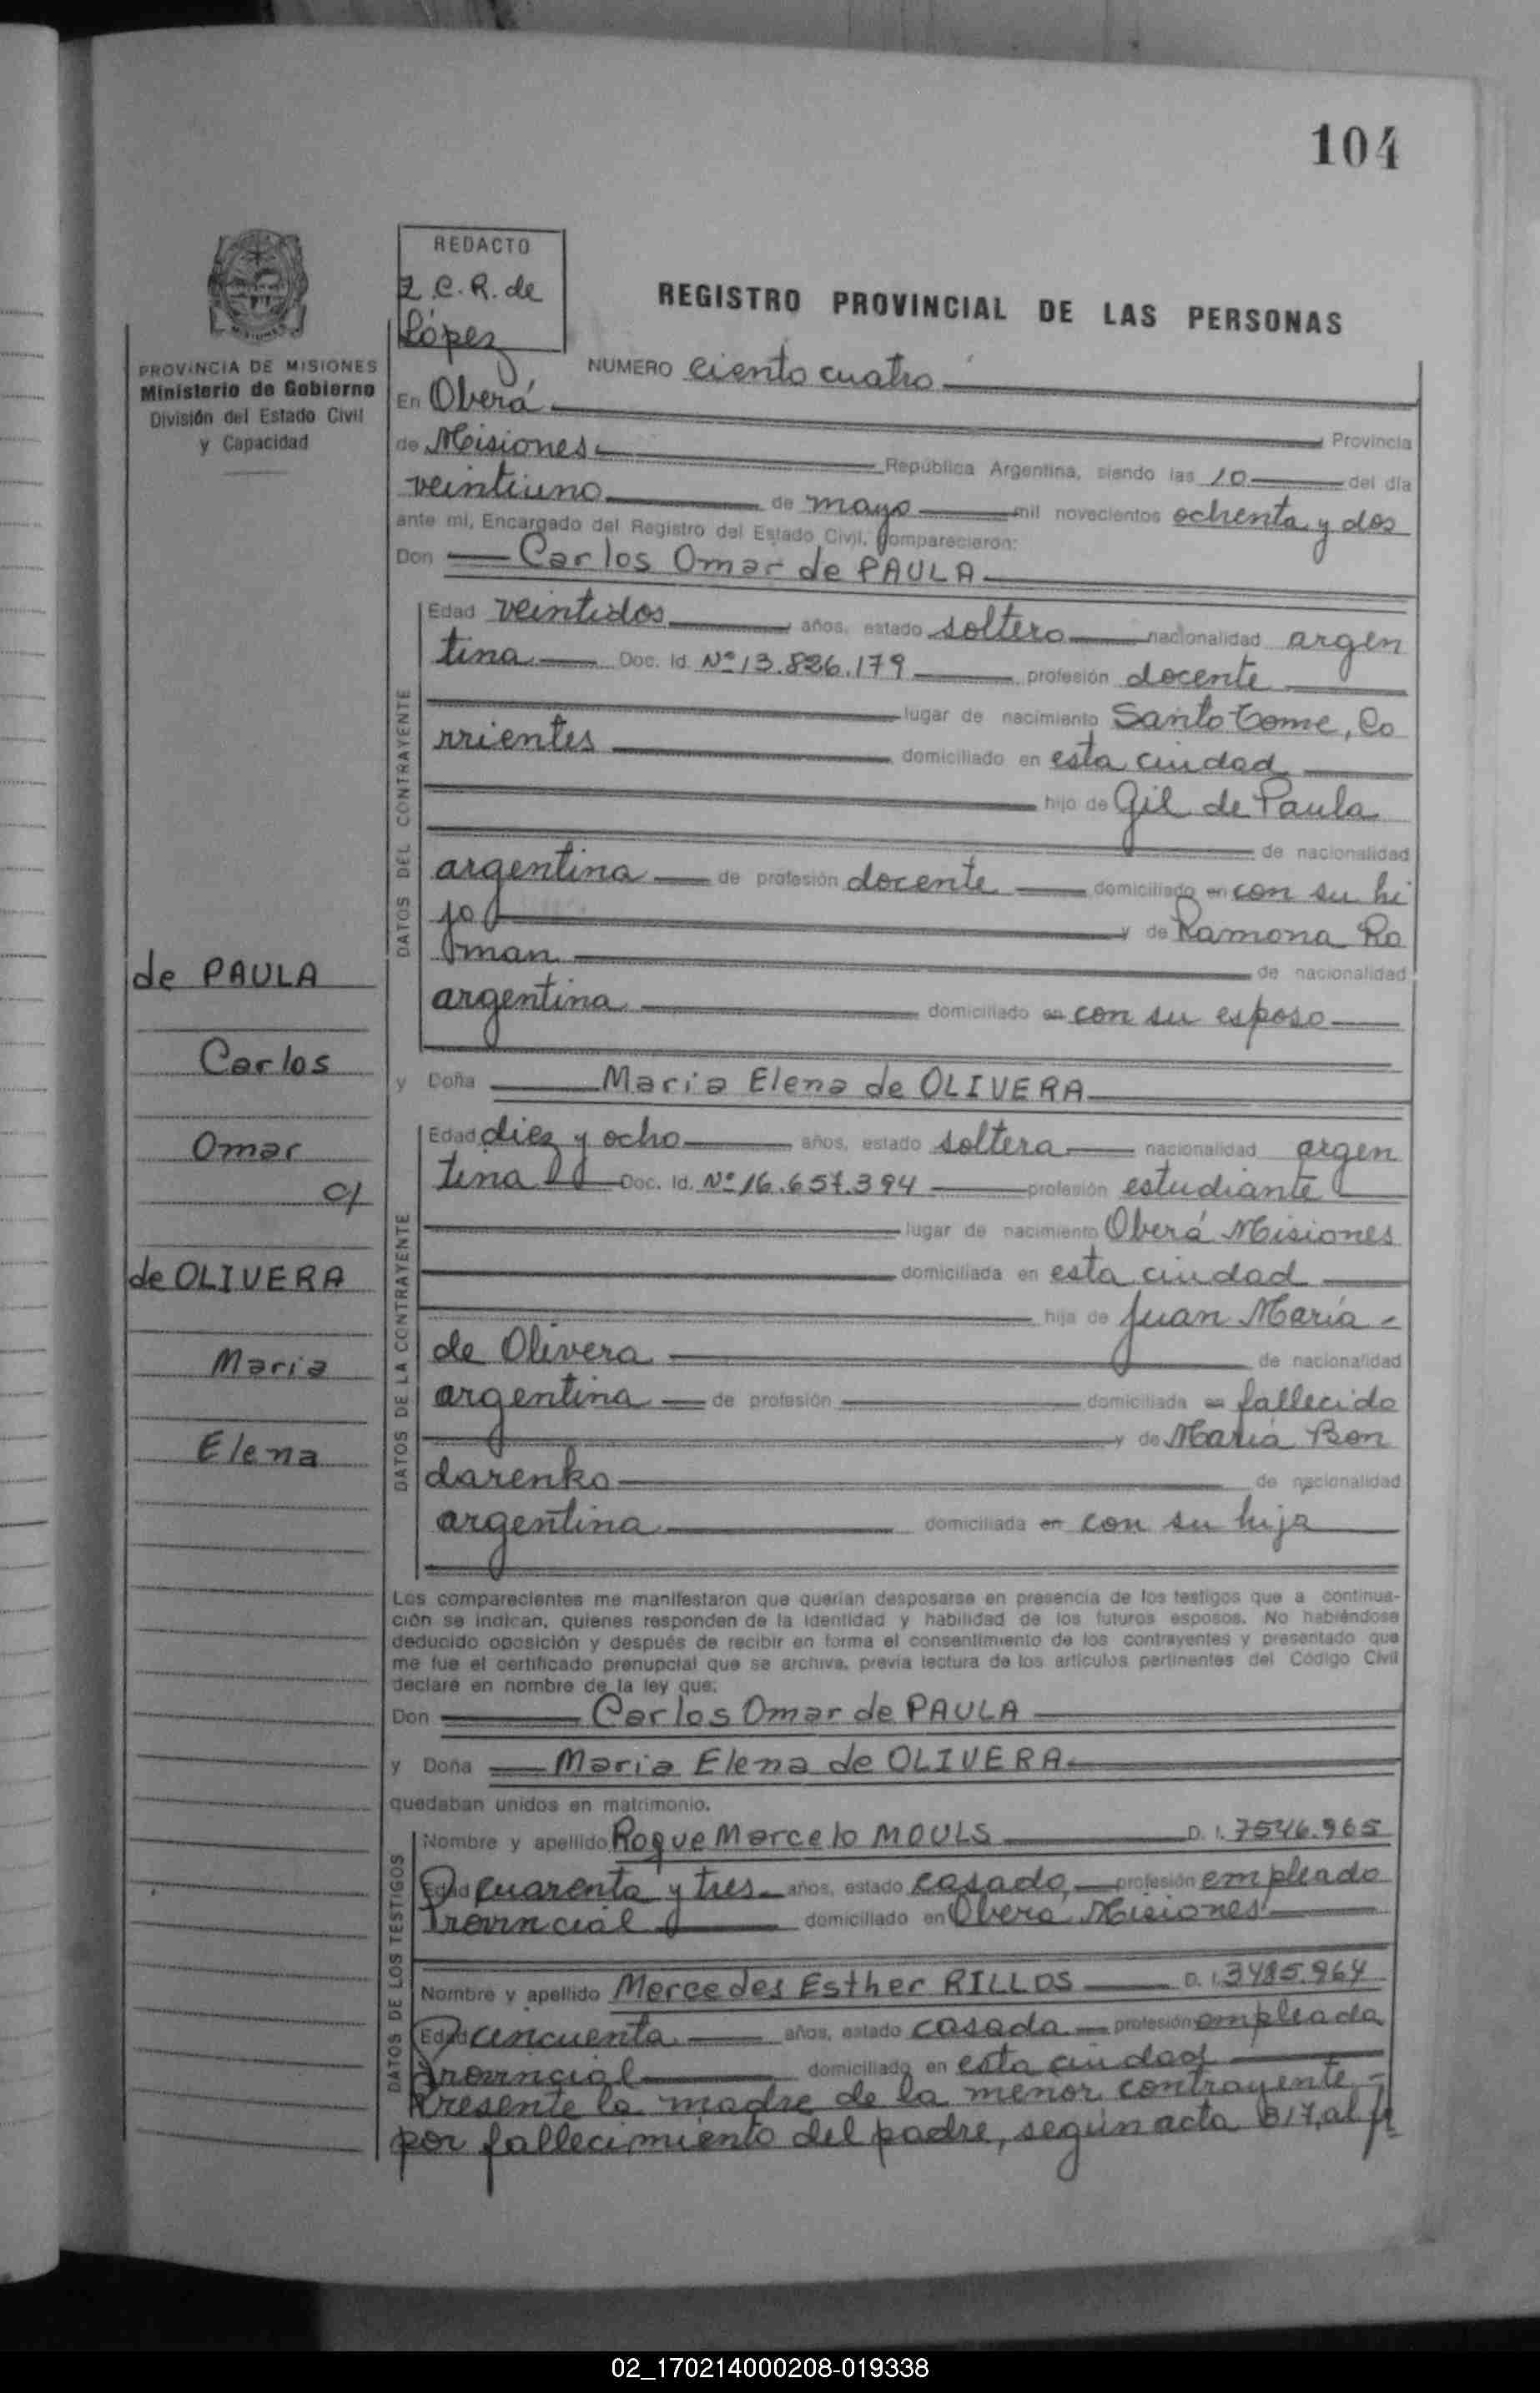 104
REDACTO
Z C. R. de
López
REGISTRO PROVINCIAL DE LAS PERSONAS
PROVINCIA DE MISIONES
Ministerio de Gobierno
División del Estado Civil
y Capacidad
NUMERO ciento cuatro
En Oberá
Provincia
de Misiones República Argentina, siendo las 10 del día
veintiuno de mayo mil novecientos ochenta y dos
ante mi, Encargado del Registro del Estado Civil, comparecieron:
Don Carlos Omar de PAULA
DATOS DEL CONTRAYENTE
Edad veintidos años, estado soltero nacionalidad argen
tina Doc. Id. Nº 13.826.179 profesión docente
lugar de nacimiento Santo Tome, Co
rrientes domiciliado en esta ciudad
hijo de Gil de Paula
de nacionalidad
argentina de profesión docente domiciliado en con su hi
jo y de Ramona Ro
man de nacionalidad
argentina domiciliado en con su esposo
y Doña Maria Elena de OLIVERA
DATOS DE LA CONTRAYENTE
Edad diez y ocho años, estado soltera nacionalidad argen
tina Doc. Id. Nº 16.657.394 profesión estudiante
lugar de nacimiento Oberá Misiones
domiciliada en esta ciudad
hija de Juan María -
de Olivera de nacionalidad
argentina de profesión domiciliada en fallecido
y de María Bon
darenko de nacionalidad
argentina domiciliada en con su hija
de PAULA
Carlos
Omar
c/
de OLIVERA
Maria
Elena
Los comparecientes me manifestaron que querían desposarse en presencia de los testigos que a continua-
ción se indican, quienes responden de la identidad y habilidad de los futuros esposos. No habiéndose
deducido oposición y después de recibir en forma el consentimiento de los contrayentes y presentado que
me fue el certificado prenupcial que se archiva, previa lectura de los artículos pertinentes del Código Civil
declaré en nombre de la ley que:
Don Carlos Omar de PAULA
y Doña Maria Elena de OLIVERA
quedaban unidos en matrimonio.
DATOS DE LOS TESTIGOS
Nombre y apellido Roque Marcelo MOULS D. I. 7546.965
Edad cuarenta y tres años, estado casado profesión empleado
Provincial domiciliado en Oberá Misiones
Nombre y apellido Mercedes Esther RILLOS D. I. 3495.964
Edad cincuenta años, estado casada profesión empleada
Provincial domiciliado en esta ciudad
Presente la madre de la menor contrayente -
por fallecimiento del padre, según acta 817, al
02_170214000208-019338